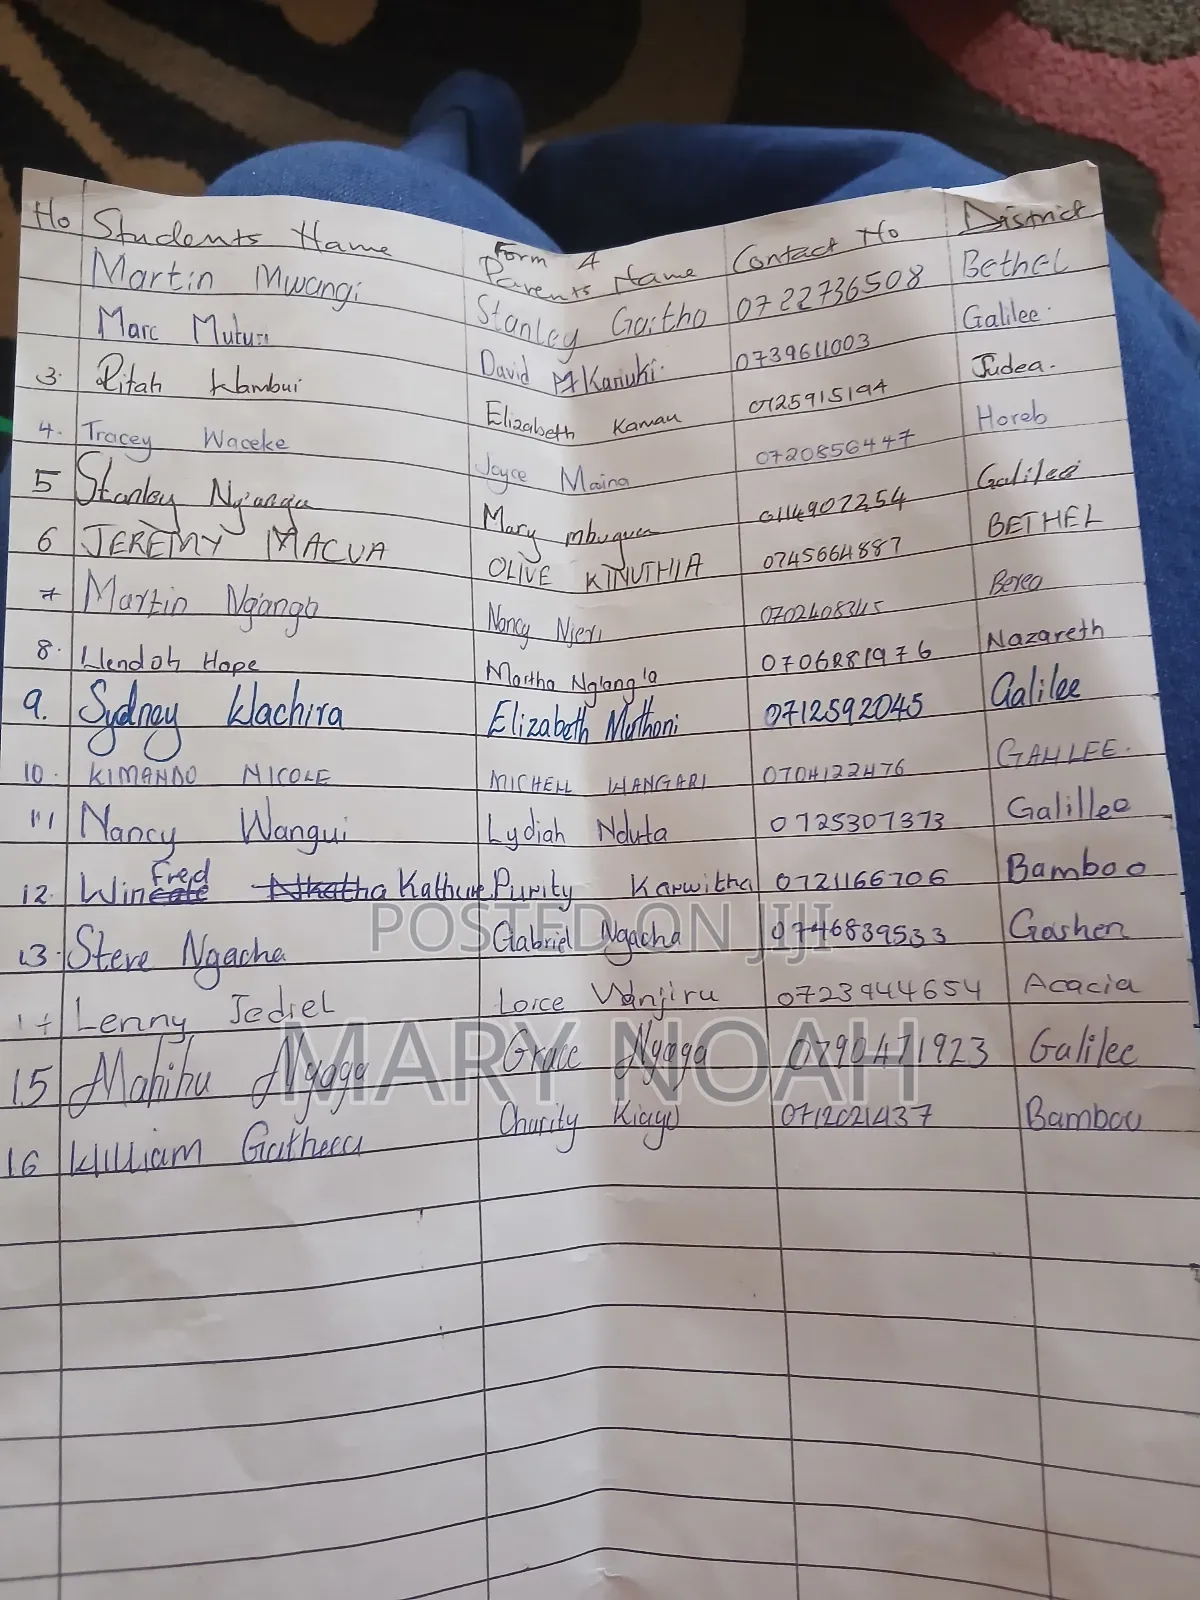 No Students Name Form 4 Parents Name Contact No District
Martin Mwangi Stanley Gaitho 0722736508 Bethel
Marc Muturi David Kariuki 0739611003 Galilee
3. Ritah Wambui Elizabeth Kamau 0725915194 Judea.
4. Tracey Waceke Joyce Maina 0720856447 Horeb
5 Stanley Ng'anga Mary mbugua 0114907254 Galilee
6 JEREMY MACUA OLIVE KINUTHIA 0745664887 BETHEL
7 Martin Ng'ang'a Nancy Njeri Berea
8. Wendoh Hope Martha Ng'ang'a 0706281976 Nazareth
9. Sydney Wachira Elizabeth Muthoni 0712592045 Galilee
10. KIMANDO NICOLE MICHELL WANGARI 0704122476 GALILEE.
11 Nancy Wangui Lydiah Nduta 0725307373 Galillee
12. Winfred Kathure Purity Karwitha 0721166706 Bamboo
13. Steve Ngacha Gabriel Ngacha 0746839533 Goshen
14 Lenny Jediel Loice Wanjiru 0723944654 Acacia
15 Mahihu Nyaga Grace Nyaga 0790471923 Galilee
16 William Gatheca Charity 0712021437 Bamboo
POSTED ON JIJI
MARY NOAH